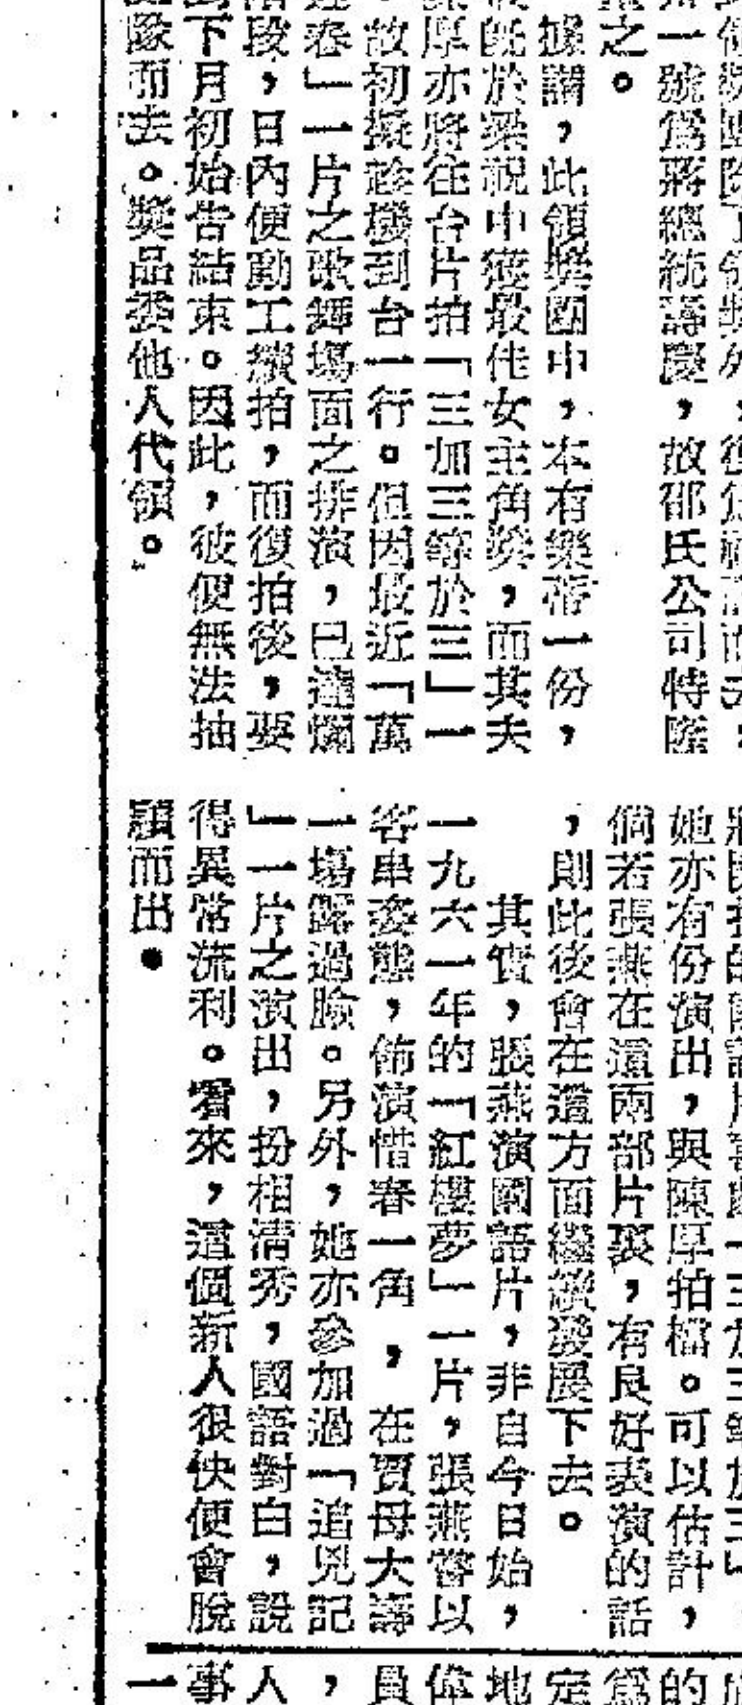 之。
據講，此領獎團中，本有樂蒂一份，
於梁祝中獲最佳女主角獎，而其夫
厚亦將在台片拍「三加三等於三」一
故初擬趁機到台一行。但因最近「萬
春」一片之歌舞場面之排演，已達爛
段，日內便動工續拍，而復拍後，要
下月初始告結束。因此，彼便無法抽
隊而去。獎品委他人代領。
她亦有份演出，與陳厚拍檔。可以估計，
倘若張燕在這兩部片裏，有良好表演的話
，則此後會在這方面繼續發展下去。
其實，張燕演國語片，非自今日始，
一九六一年的「紅樓夢」一片，張燕嘗以
客串姿態，飾演惜春一角，在賈母大壽
一場露過臉。另外，她亦參加過「追兇記
」一片之演出，扮相清秀，國語對白，說
得異常流利。看來，這個新人很快便會脫
穎而出。
的
為
定
地
偉
員
，
人
事
一